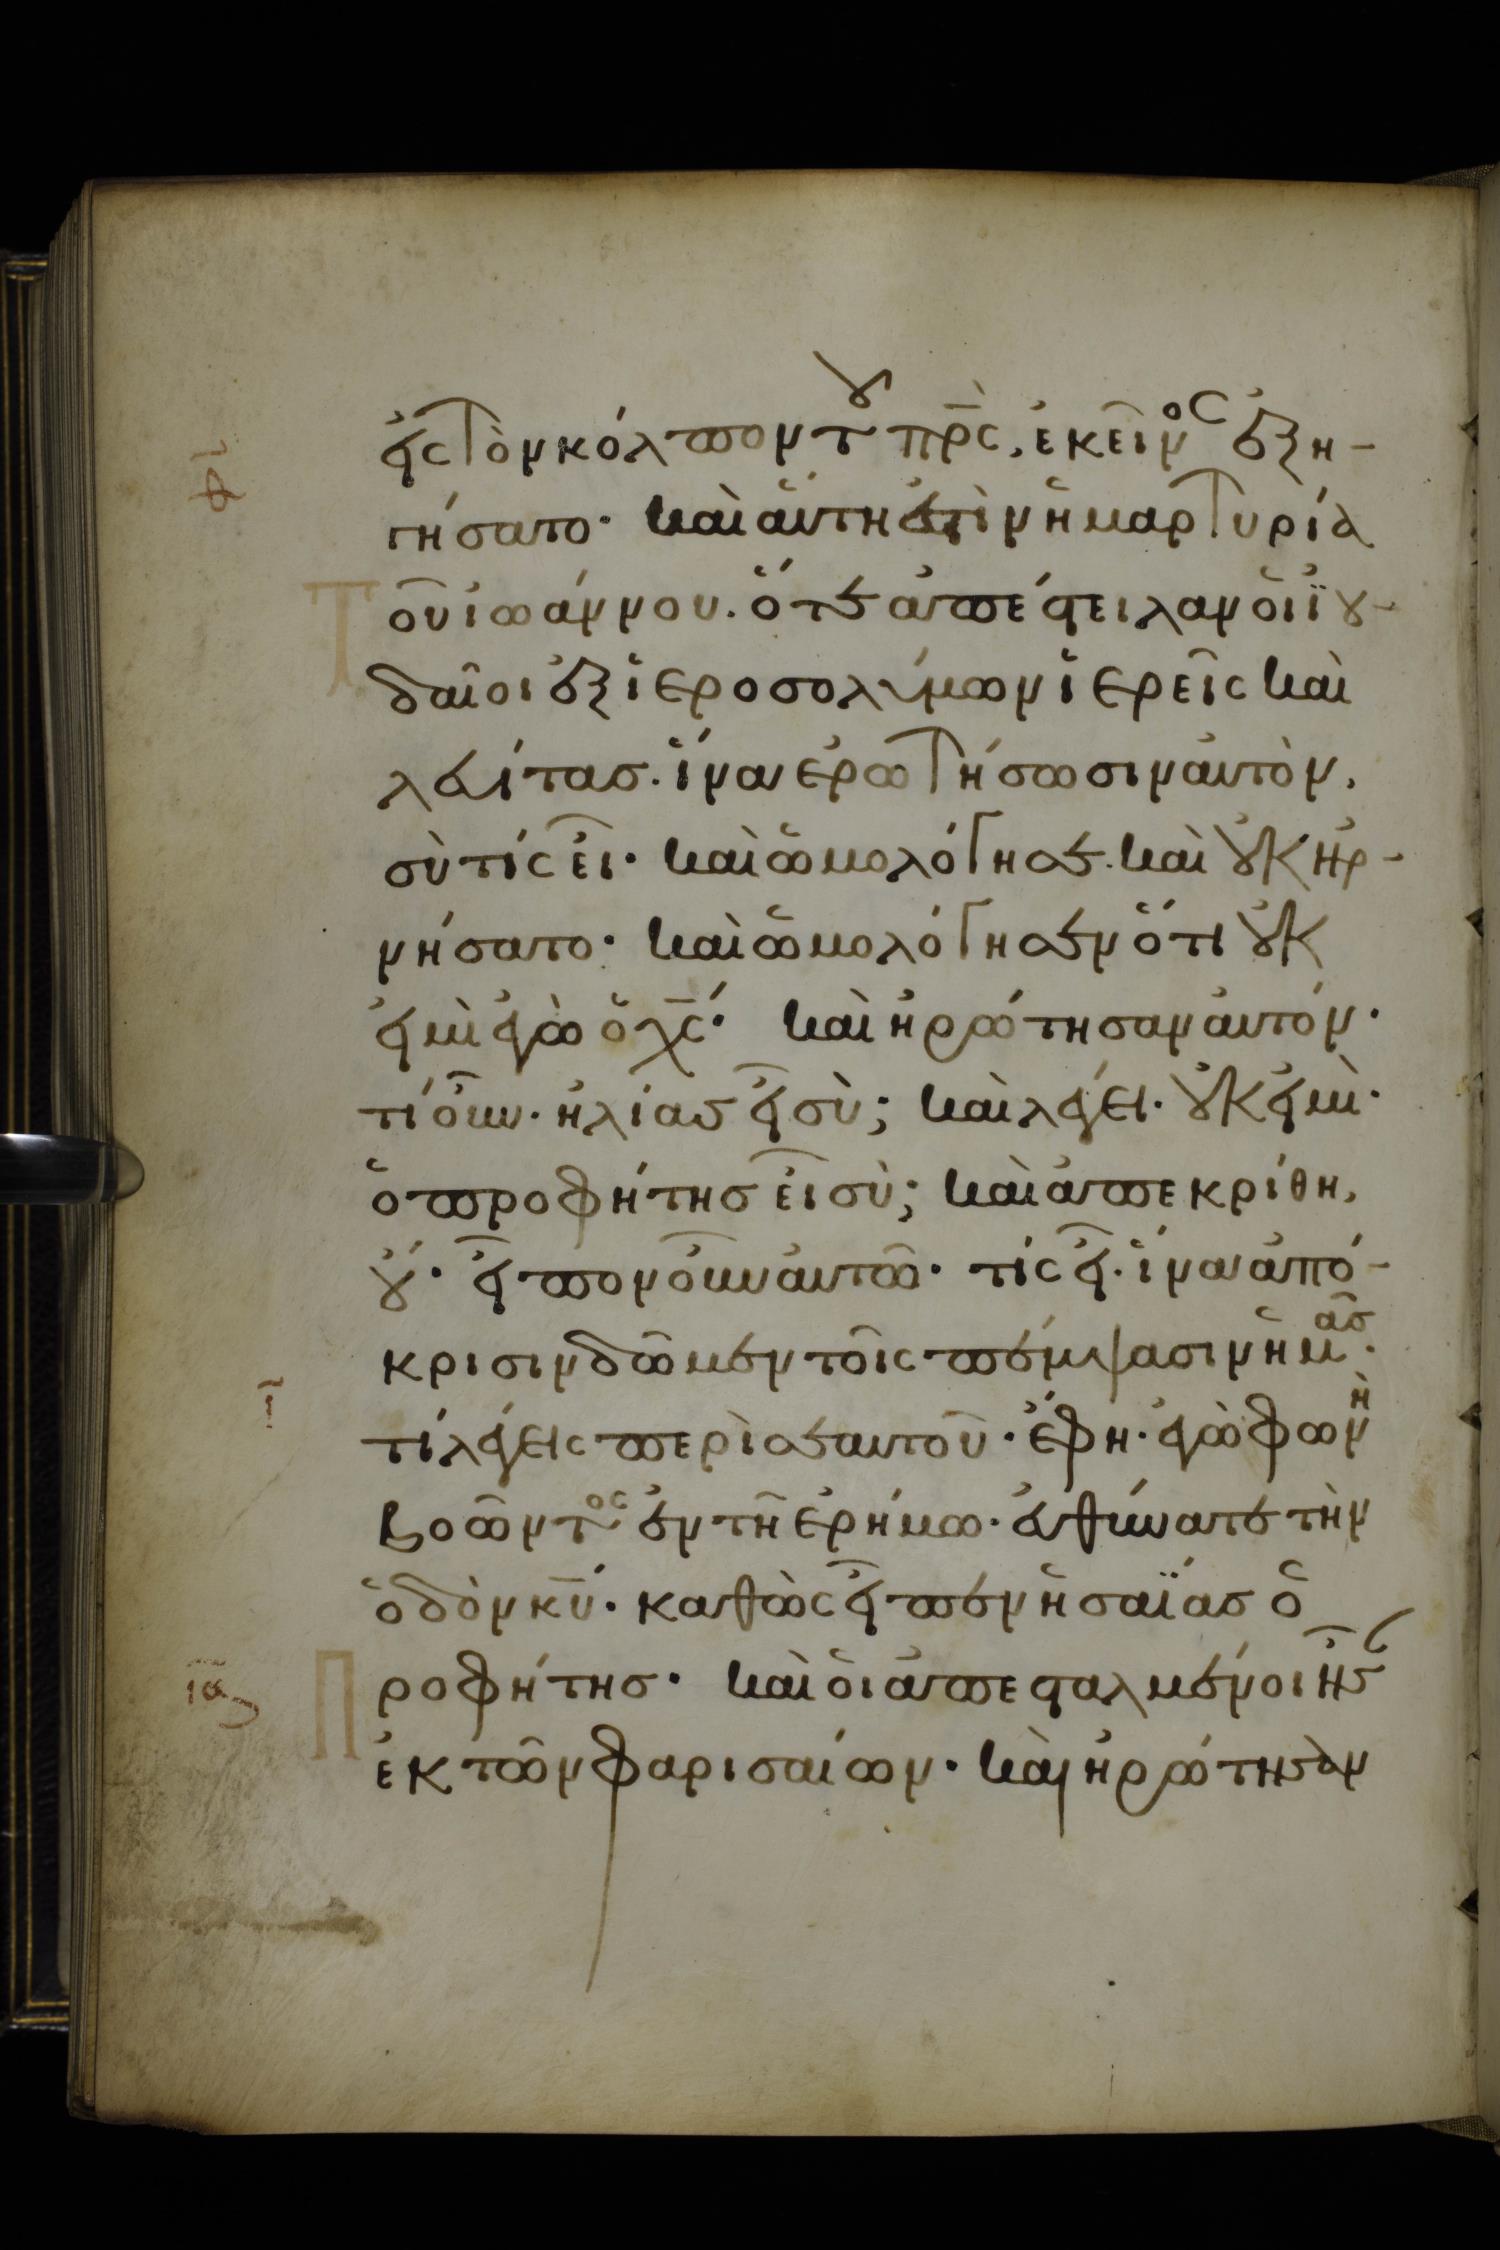 εἰς τὸν κόλπον τοῦ πρς, ἐκεῖνος ἐξη-
γήσατο· καὶ αὕτη ἐστὶν ἡ μαρτυρία
Τοῦ ἰωάννου. ὅτε ἀπέστειλαν οἱ ἰου-
δαῖοι ἐξ ἱεροσολύμων ἱερεῖς καὶ
λευίτας. ἵνα ἐρωτήσωσιν αὐτὸν,
σὺ τίς εἶ· καὶ ὡμολόγησε. καὶ οὐκ ἠρ-
νήσατο· καὶ ὡμολόγησεν ὅτι οὐκ
εἰμὶ ἐγὼ ὁ χς· καὶ ἠρώτησαν αὐτόν·
τί οὖν. ἡλίας εἶ σὺ; καὶ λέγει. οὐκ εἰμὶ.
ὁ προφήτης εἶ σὺ; καὶ ἀπεκρίθη,
οὔ· εἶπον οὖν αὐτῶ· τίς εἶ. ἵνα ἀπό-
κρισιν δῶμεν τοῖς πέμψασιν ἡμᾶς.
τί λέγεις περὶ σεαυτοῦ· ἔφη· ἐγὼ φωνὴ
βοῶντος ἐν τῆ ἐρήμω· εὐθύνατε τὴν
ὁδὸν κυ· καθὼς εἶπεν ἡσαΐας ὁ
Προφήτης· καὶ οἱ ἀπεσταλμένοι ἦσαν
ἐκ τῶν φαρισαίων· καὶ ἠρώτησαν
ι
ια